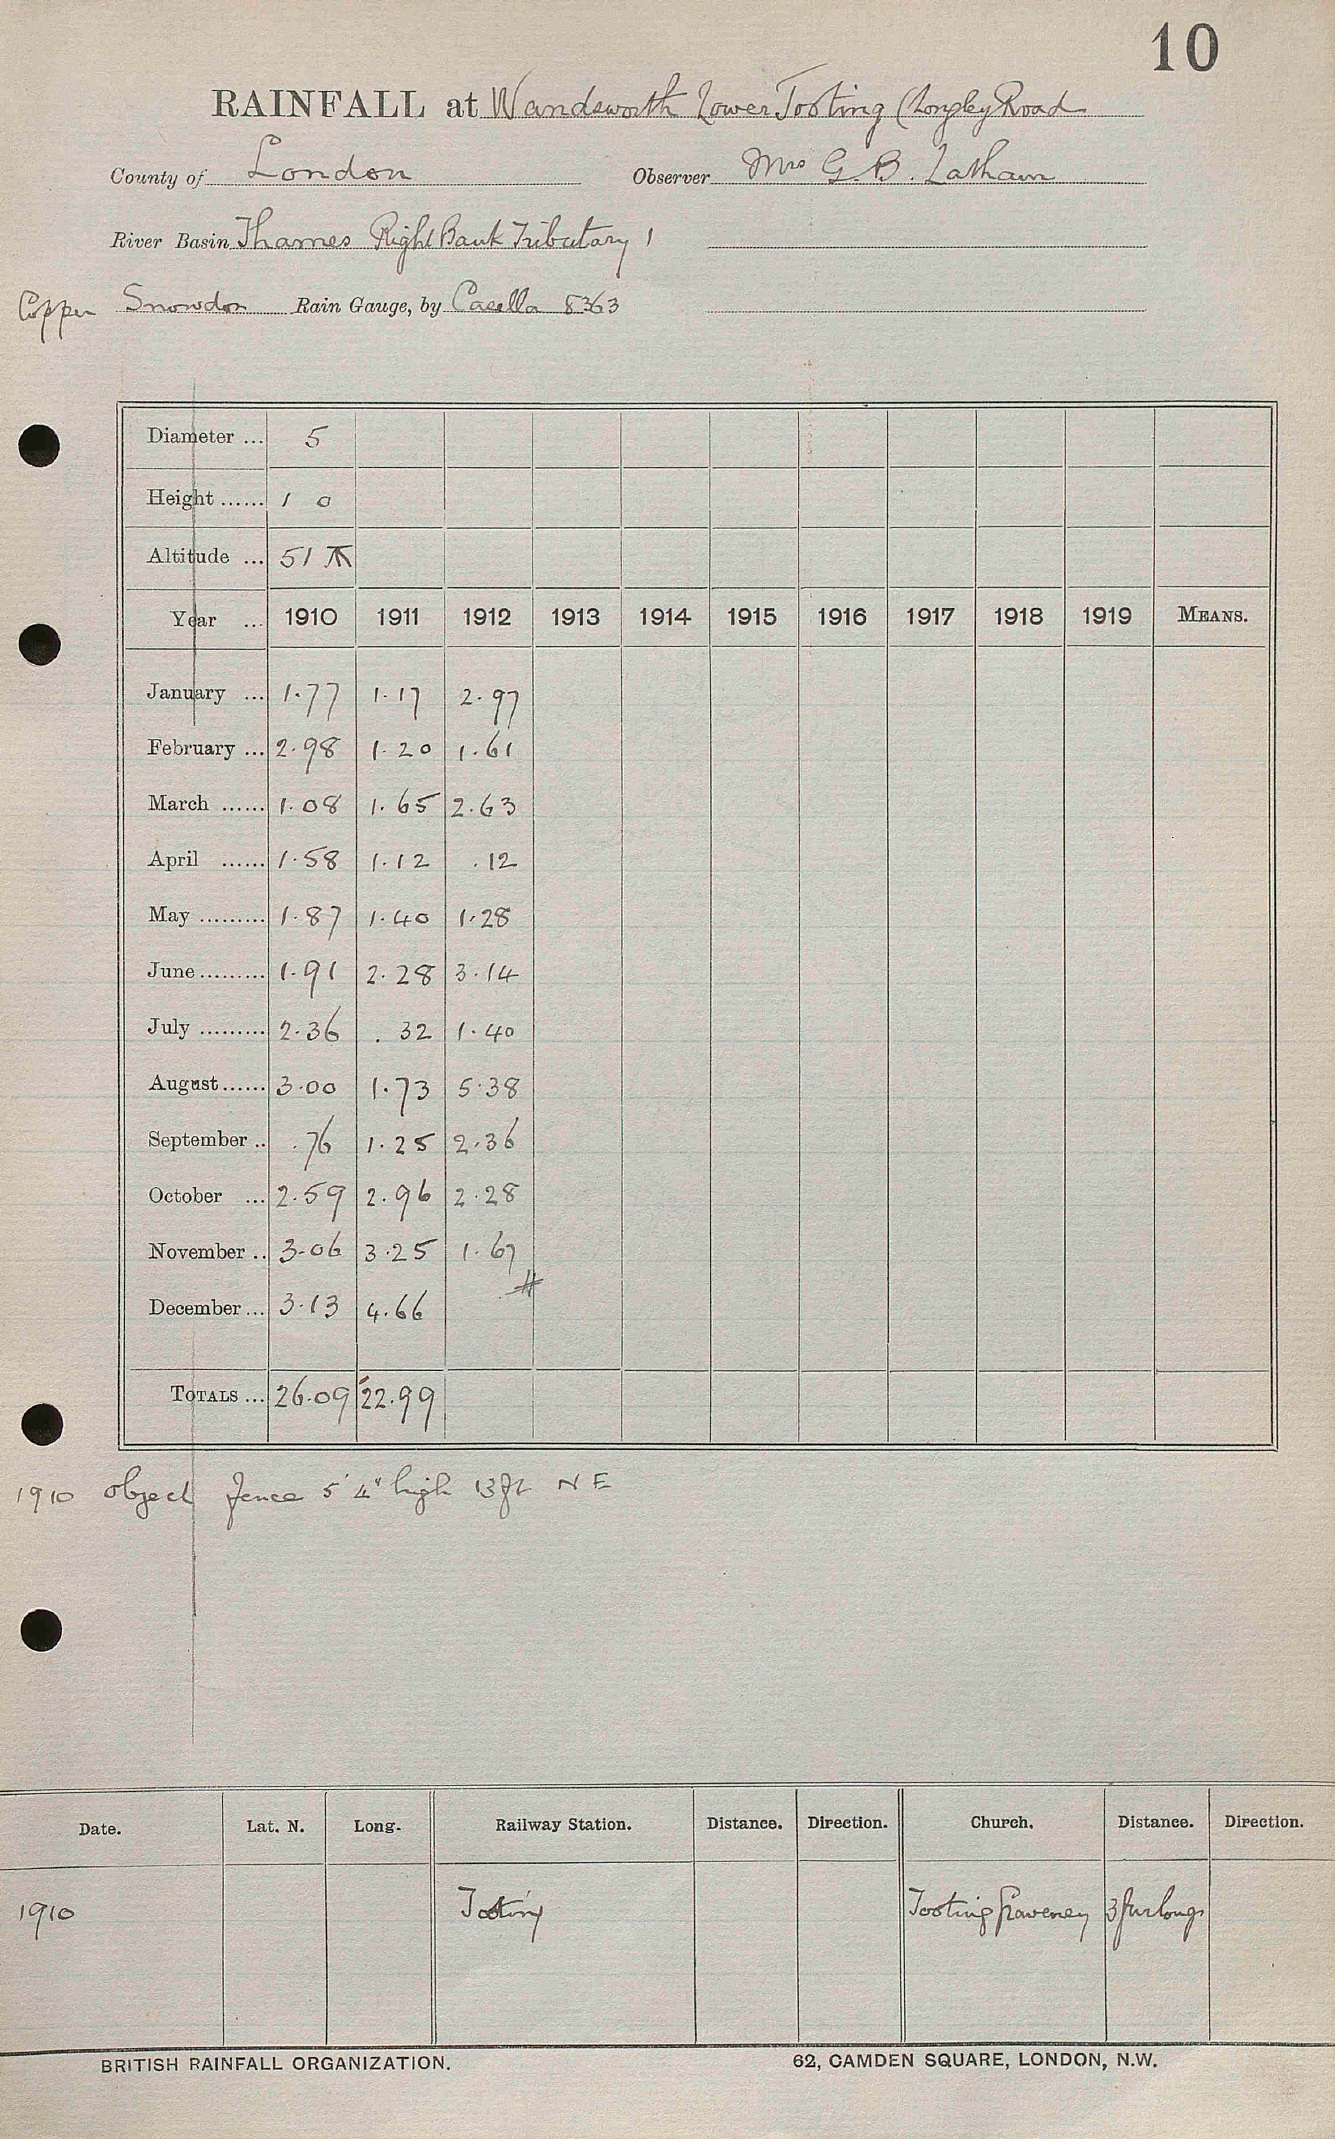 10
RAINFALL at Wandsworth Lower Tooting (Longley Road
County of London Observer Mrs G. B. Latham
River Basin Thames Right Bank Tributary 1
Copper Snowdon Rain Gauge, by Casella 8363
Diameter ... 5
Height ...... 1 0
Altitude ... 51
Year ... 1910 1911 1912 1913 1914 1915 1916 1917 1918 1919 MEANS.
January ... 1.77 1.17 2.97
February ... 2.98 1.20 1.61
March ...... 1.08 1.65 2.63
April ...... 1.58 1.12 .12
May ......... 1.87 1.40 1.28
June ......... 1.91 2.28 3.14
July ......... 2.36 .32 1.40
August ...... 3.00 1.73 5.38
September .. .76 1.25 2.36
October ... 2.59 2.96 2.28
November .. 3.06 3.25 1.67
December ... 3.13 4.66 #
TOTALS ... 26.09 22.99
1910 Object fence 5' 4" high 13 ft N E
Date. Lat. N. Long. Railway Station. Distance. Direction. Church. Distance. Direction.
1910 Tooting Tooting Graveney 3 furlongs
BRITISH RAINFALL ORGANIZATION. 62, CAMDEN SQUARE, LONDON, N.W.